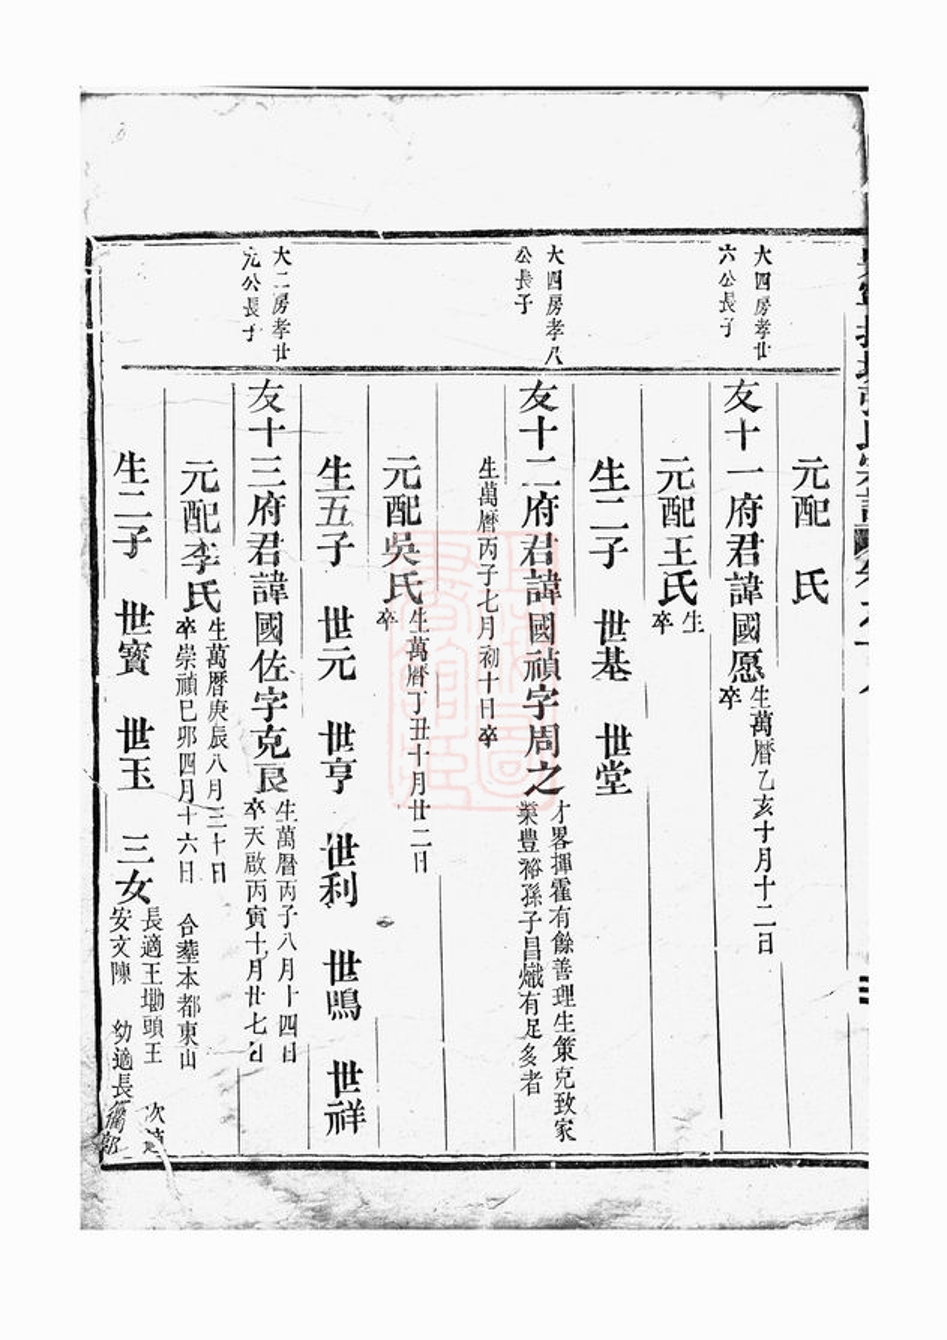 元配　氏
大四房孝廿
六公長子
友十一府君諱國愿
生萬曆乙亥十月十二日
卒
元配王氏
生
卒
生二子　世基　世堂
大四房孝八
公長子
友十二府君諱國禎字周之
才畧揮霍有餘善理生策克致家
業豊裕孫子昌熾有足多者
生萬曆丙子七月初十日卒
元配吳氏
生萬曆丁丑十月廿二日
卒
生五子　世元　世亨　世利　世鳴　世祥
大二房孝廿
九公長子
友十三府君諱國佐字克良
生萬曆丙子八月十四日
卒天啟丙寅十月廿七日
元配李氏
生萬曆庚辰八月三十日
卒崇禎己卯四月十六日
合塟本都東山
生二子　世寳　世玉　三女
長適王坳頭王　次適
安文陳　幼適長衢郭